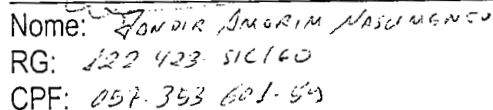 Nome: JANDIR AMORIM NASCIMENTO
RG: 122 423 SIC/GO
CPF: 057.353 601-59